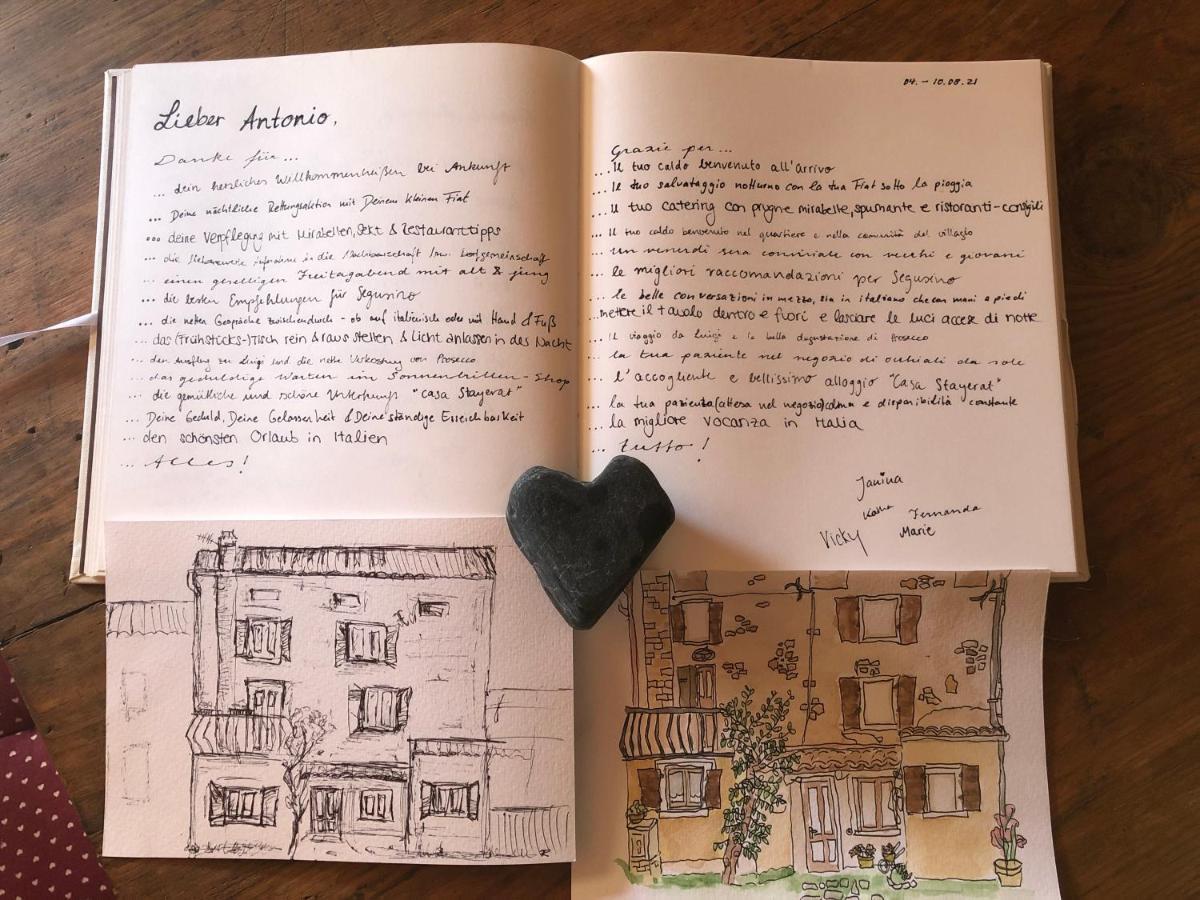 Lieber Antonio,
Danke für...
... dein herzliches Willkommenheißen bei Ankunft
... Deine nächtliche Rettungsaktion mit Deinem kleinen Fiat
... deine Verpflegung mit Mirabellen, Sekt & Restauranttipps
... die liebevolle Aufnahme in die Nachbarschaft / Dorfgemeinschaft
... einen geselligen Freitagabend mit alt & jung
... die besten Empfehlungen für Segusino
... die netten Gespräche zwischendurch - ob auf italienisch oder mit Hand & Fuß
... das (Frühstücks-)Tisch rein & raus stellen & Licht anlassen in der Nacht
... den Ausflug zu Luigi und die nette Verkostung von Prosecco
... das geduldige Warten im Sonnenbrillen-Shop
... die gemütliche und schöne Unterkunft "casa Stayerat"
... Deine Geduld, Deine Gelassenheit & Deine ständige Erreichbarkeit
... den schönsten Urlaub in Italien
... Alles!
04. - 10.08.21
Grazie per...
... Il tuo caldo benvenuto all'arrivo
... Il tuo salvataggio notturno con la tua Fiat sotto la pioggia
... Il tuo catering con prugne mirabelle, spumante e ristoranti-consigli
... Il tuo caldo benvenuto nel quartiere e nella comunità del villagio
... un venerdì sera conviviale con vecchi e giovani
... le migliori raccomandazioni per Segusino
... le belle conversazioni in mezzo, sia in italiano che con mani e piedi
... mettere il tavolo dentro e fuori e lasciare le luci accese di notte
... il viaggio da Luigi e la bella degustazione di Prosecco
... la tua paziente nel negozio di occhiali da sole
... l'accogliente e bellissimo alloggio "Casa Stayerat"
... la tua pazienza (attesa nel negozio) calma e disponibilità constante
... la migliore vacanza in Italia
... tutto!
Janina
Fernanda
Vicky
Marie